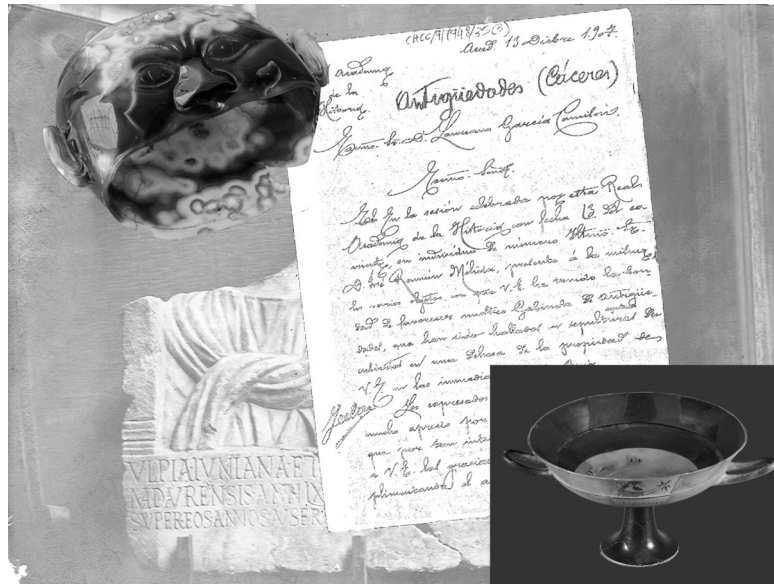 (HCC/9/1948/35(3))
Acad. 13 Dicbre 1907.
Academia
de la
Historia
Antigüedades (Cáceres)
Excmo. Sr. D. Laureano García Camisón.
Excmo. Señor.
En la sesión celebrada por esta Real
Academia de la Historia con fecha 13 del co
rriente, su individuo de número Iltmo. Sr.
D. José Ramón Mélida, presentó a la misma
los varios objetos, con que V. E. ha tenido la bon
dad de favorecer nuestro Gabinete de antigüe-
dades, que han sido hallados en sepulturas des
cubiertas en una dehesa de la propiedad de
V. E. en las inmedia
Los expresados
mucho aprecio por
que, por ser inte
a V. E. las gracias
VLPIA IVNIANA ET
NADVRENSIS ANN IX
SVPER EOS ANNOS V SER